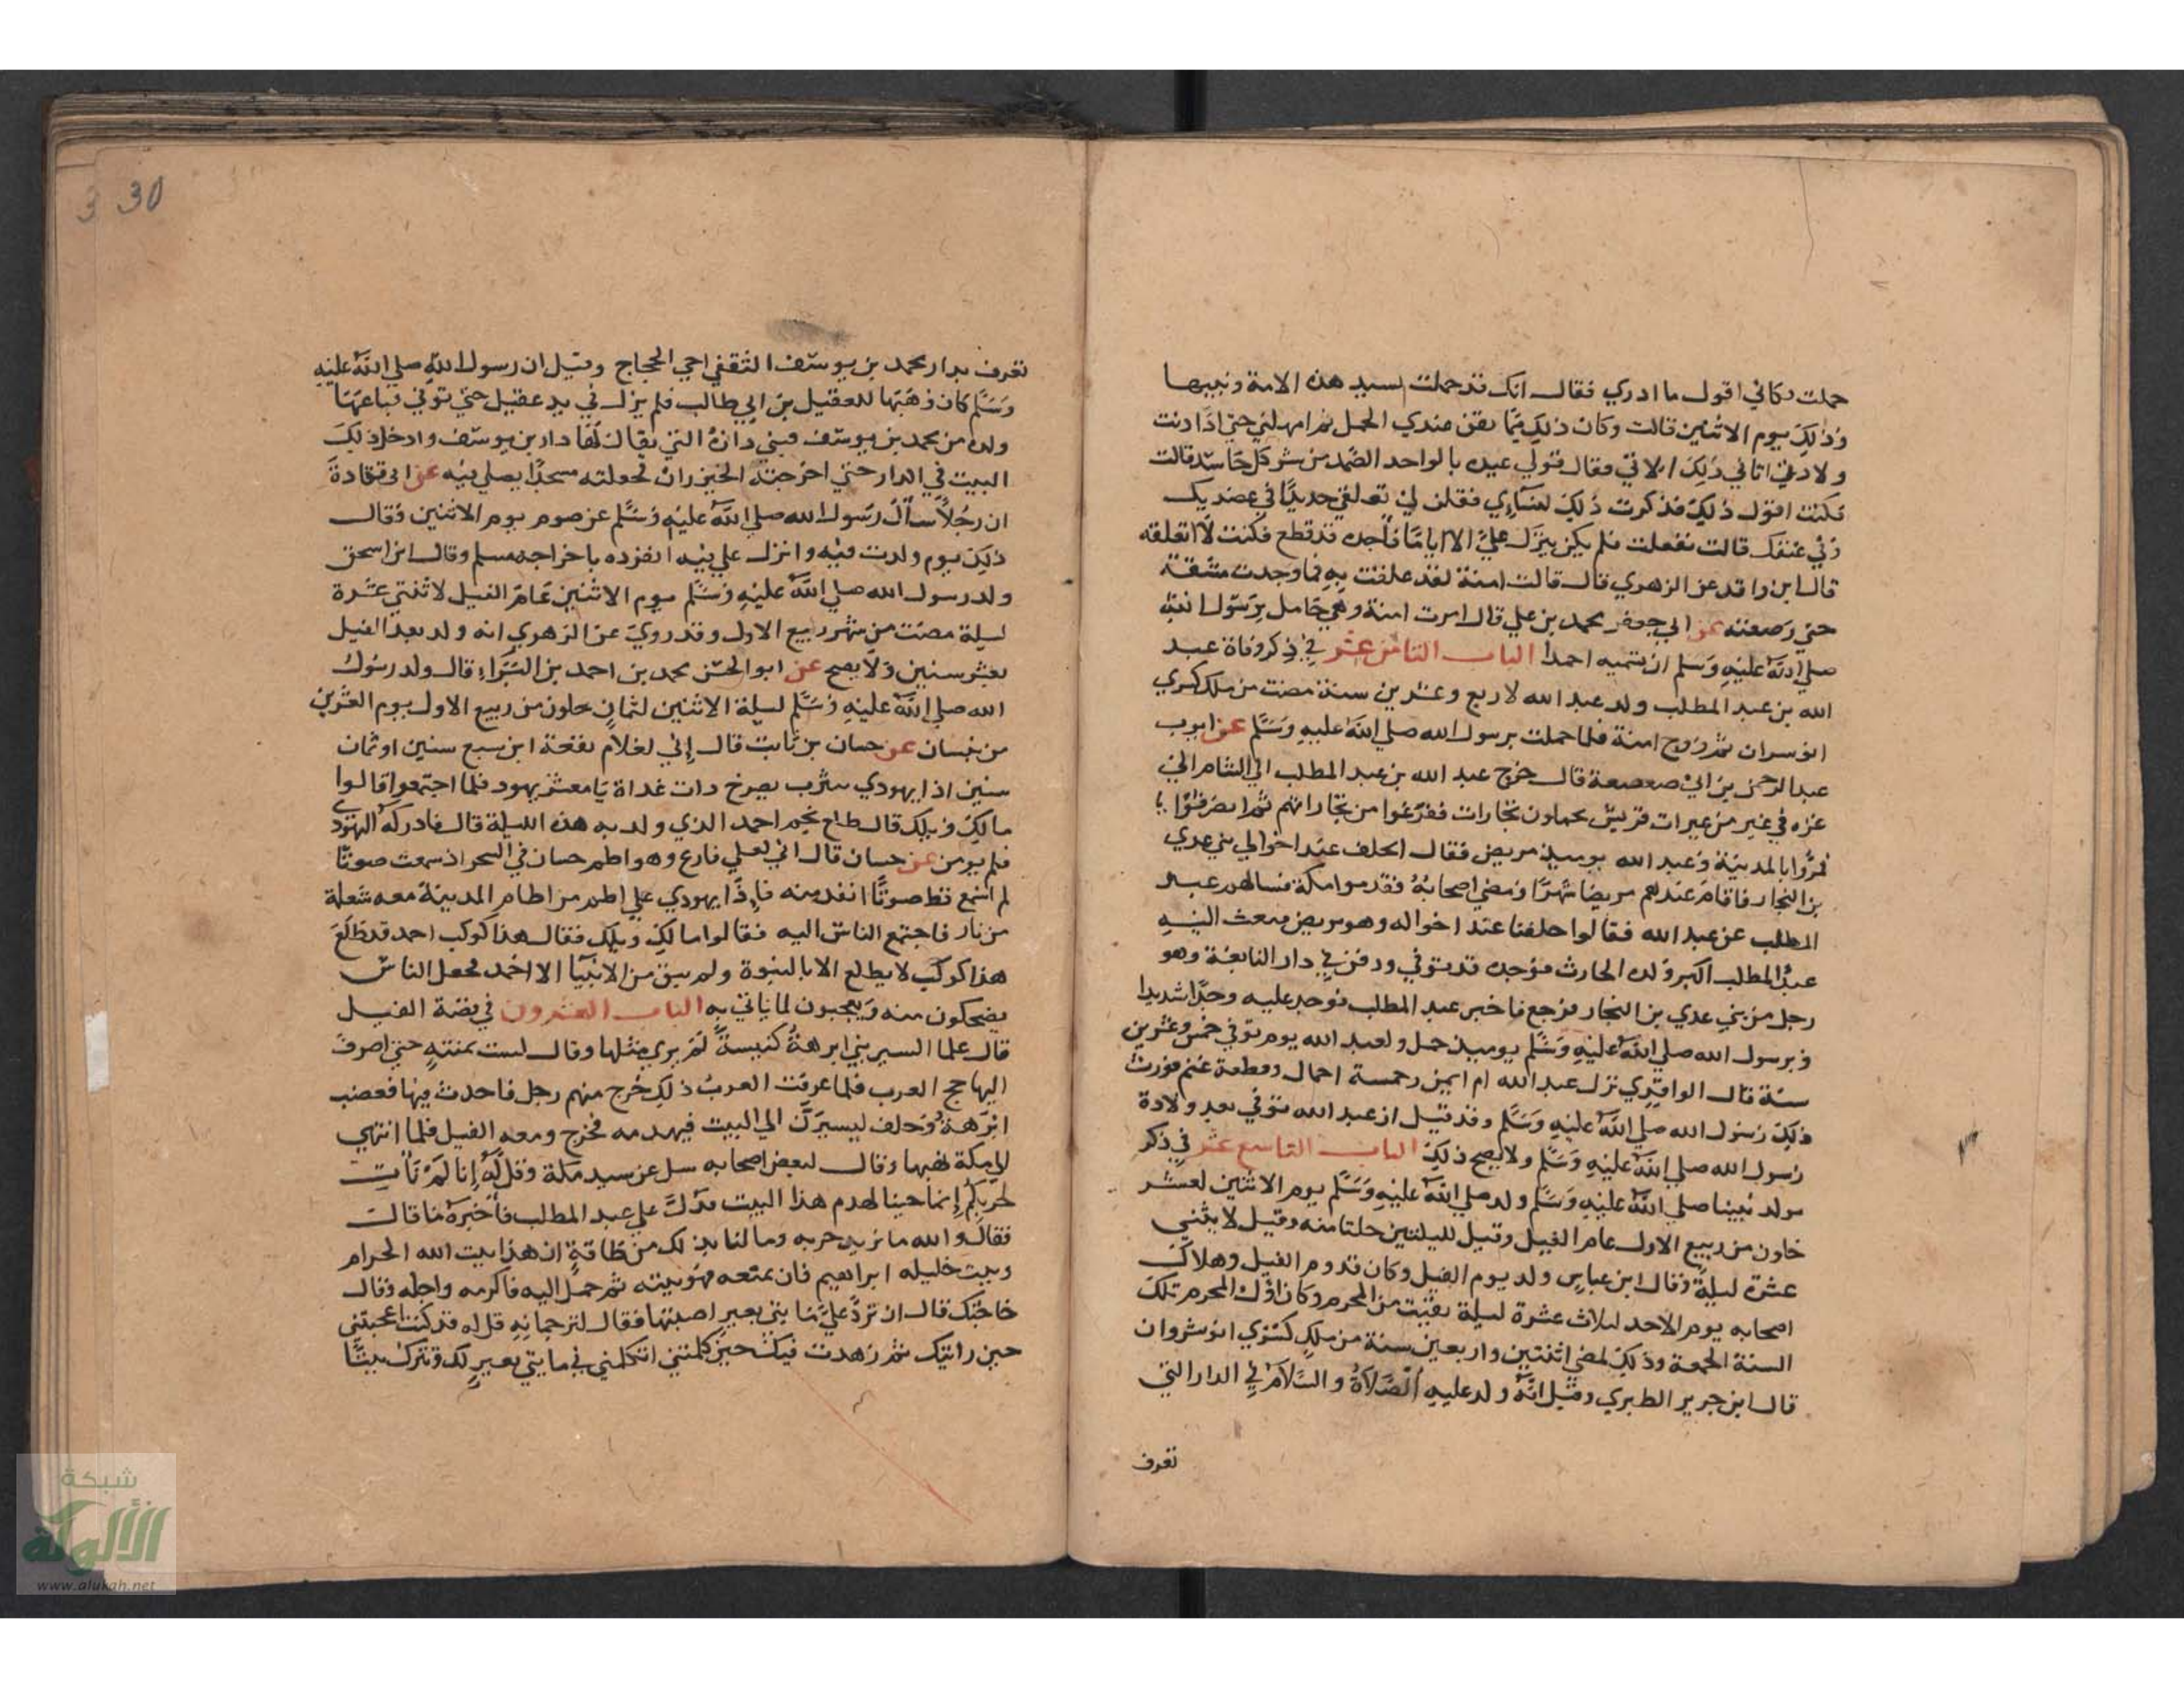 حملت فكاني اقول ما ادري فقال انك قد حملت بسيد هذه الامة ونبيها
وذلك يوم الاثنين قالت وكان ذلك مما يقن عندي الحمل ثم امهلني حتى اذا دنت
ولادتي اتاني ذلك الاتي فقال قولي عيذه بالواحد الصمد من شر كل حاسد قالت
فكنت اقول ذلك فذكرت ذلك لنساي فقلن لي تعلقي حديدا في عضديك
وفي عنقك قالت ففعلت فلم يكن يترك علي الا اياما فاجده قد قطع فكنت لا اتعلقه
قال ابن واقد عن الزهري قال قالت امنة لقد علقت به فما وجدت مشقة
حتى وضعته عن ابي جعفر محمد بن علي قال امرت امنة وهي حامل برسول الله
صلي الله عليه وسلم ان تسميه احمدا الباب الثامن عشر في ذكر وفاة عبد
الله بن عبد المطلب ولد عبد الله لاربع وعشرين سنة مضت من ملك كسري
انوسروان ثم تزوج امنة فلما حملت برسول الله صلي الله عليه وسلم عن ايوب
عبد الرحمن بن ابي صعصعة قال خرج عبد الله بن عبد المطلب الي الشام الي
غزه في عير من عيرات قريش يحملون تجارات ففرغوا من تجاراتهم ثم انصرفوا
فمروا بالمدينة وعبد الله يوميذ مريض فقال اتخلف عند اخوالي بني عدي
بن النجار فاقام عندهم مريضا شهرا ومضي اصحابه فقدموا مكة فسالهم عبد
المطلب عن عبد الله فقالوا خلفنا عند اخواله وهو مريض فبعث اليه
عبد المطلب اكبر ولده الحارث فوجده قد توفي ودفن في دار النابغة وهو
رجل من بني عدي بن النجار فرجع فاخبر عبد المطلب فوجد عليه وجدا شديدا
ورسول الله صلي الله عليه وسلم يوميذ حمل ولعبد الله يوم توفي خمس وعشرين
سنة قال الواقدي ترك عبد الله ام ايمن وخمسة اجمال وقطعة غنم فورث
ذلك رسول الله صلي الله عليه وسلم وقد قيل ان عبد الله توفي بعد ولادة
رسول الله صلي الله عليه وسلم ولا يصح ذلك الباب التاسع عشر في ذكر
مولد نبينا صلي الله عليه وسلم ولد صلي الله عليه وسلم يوم الاثنين لعشر
خلون من ربيع الاول عام الفيل وقيل لليلتين خلتا منه وقيل لاثنتي
عشرة ليلة وقال ابن عباس ولد يوم الفيل وكان قدوم الفيل وهلاك
اصحابه يوم الاحد لثلاث عشرة ليلة بقيت من المحرم وكان اول المحرم تلك
السنة الجمعة وذلك لمضي اثنتين واربعين سنة من ملك كسري انوشروان
قال ابن جرير الطبري وقيل انه ولد عليه الصلاة والسلام في الدار التي
تعرف
30
تعرف بدار محمد بن يوسف الثقفي اخي الحجاج وقيل ان رسول الله صلي الله عليه
وسلم كان وهبها للعقيل بن ابي طالب فلم يزل في يد عقيل حتى توفي فباعها
ولده من محمد بن يوسف فبني داره التي يقال لها دار بن يوسف وادخل ذلك
البيت في الدار حتي اخرجته الخيزران فجعلته مسجدا يصلي فيه عن ابي قتادة
ان رجلا سأل رسول الله صلي الله عليه وسلم عن صوم يوم الاثنين فقال
ذلك يوم ولدت فيه وانزل علي فيه انفرد باخراجه مسلم وقال ابن اسحق
ولد رسول الله صلي الله عليه وسلم يوم الاثنين عام الفيل لاثنتي عشرة
ليلة مضت من شهر ربيع الاول وقد روي عن الزهري انه ولد بعد الفيل
بعشر سنين ولا يصح عن ابو الحسن محمد بن احمد بن البراء قال ولد رسول
الله صلي الله عليه وسلم ليلة الاثنين لثمان خلون من ربيع الاول يوم العشرين
من نيسان عن حسان بن ثابت قال إني لغلام يفعة ابن سبع سنين او ثمان
سنين اذا يهودي بيثرب يصرخ ذات غداة يا معشر يهود فلما اجتمعوا قالوا
مالك ويلك قال طلع نجم احمد الذي ولد به هذه الليلة قال فادركه اليهودي
فلم يومن عن حسان قال اني لعلي فارع وهو اطم حسان في السحر اذ سمعت صوتا
لم اسمع قط صوتا انفد منه فاذا يهودي علي اطم من اطام المدينة معه شعلة
من نار فاجتمع الناس اليه فقالوا مالك ويلك فقال هذا كوكب احمد قد طلع
هذا كوكب لا يطلع الا بالنبوة ولم يبق من الانبيا الا احمد فجعل الناس
يضحكون منه ويعجبون لما ياتي به الباب العشرون في قصة الفيل
قال علما السير بني ابرهة كنيسة لم يري مثلها وقال لست بمنته حتى اصرف
اليها حج العرب فلما عرفت العرب ذلك خرج منهم رجل فاحدث فيها فغضب
ابرهة وحلف ليسيرن الي البيت فيهدمه فخرج ومعه الفيل فلما انتهي
الي مكة نهبها وقال لبعض اصحابه سل عن سيد مكة وقل له إنا لم نات
لحربكم إنما جينا لهدم هذا البيت فدل علي عبد المطلب فأخبره ما قال
فقال والله ما نريد حربه وما لنا بذلك من طاقة ان هذا بيت الله الحرام
وبيت خليله ابراهيم فان يمنعه فهو بيته ثم حمل اليه فاكرمه واجله وقال
حاجتك قال ان ترد علي مايتي بعير اصبتها فقال لترجمانه قل له قد كنت اعجبتني
حين رايتك ثم زهدت فيك حين كلمتني اتكلمني في مايتي بعير لك وتترك بيتا
شبكة
الألوكة
www.alukah.net